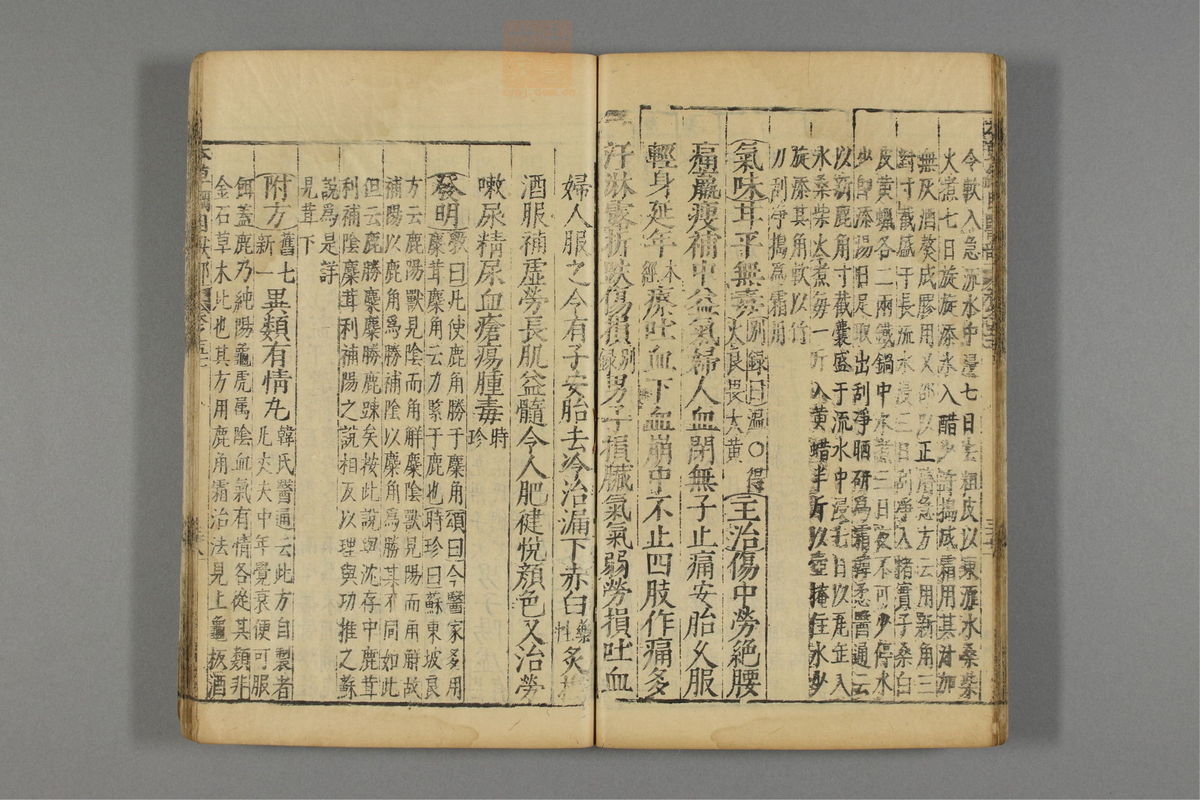 今軟入急流水中浸七日去粗皮以東流水桑柴
火煮七日旋旋添水入醋少許搗成霜用其汁加
無灰酒熬成膠用又邵以正濟急方云用新角三
對寸截盛于長流水浸三日刮淨入楮實子桑白
皮黃蠟各二兩鐵鍋中水煮三日夜不可少停水
少即添湯日足取出刮淨晒研為霜韓懋醫通云
以新鹿角寸截囊盛于流水中浸七日以瓦缶入
水桑柴火煮每一斤入黃蠟半斤以壺掩住水少
旋添其角軟以竹
刀刮淨搗為霜用
氣味甘平無毒別錄曰溫○得
火良畏大黃主治傷中勞絕腰
痛羸瘦補中益氣婦人血閉無子止痛安胎久服
輕身延年本經療吐血下血崩中不止四肢作痛多
汗淋露折跌傷損別錄男子損臟氣氣弱勞損吐血
婦人服之令有子安胎去冷治漏下赤白藥性炙搗
酒服補虛勞長肌益髓令人肥健悅顏色又治勞
嗽尿精尿血瘡瘍腫毒時珍
發明斅曰凡使鹿角勝于麋角頌曰今醫家多用
麋茸麋角云力緊于鹿也時珍曰蘇東坡良
方云鹿陽獸見陰而角解麋陰獸見陽而角解故
補陽以鹿角為勝補陰以麋角為勝其不同如此
但云鹿勝麋麋勝鹿疎矣按此說與沈存中鹿茸
利補陰麋茸利補陽之說相反以理與功推之蘇
說為是詳
見茸下
附方舊七新一異類有情丸韓氏醫通云此方自製者
凡丈夫中年覺衰便可服
餌蓋鹿乃純陽龜虎属陰血氣有情各從其類非
金石草木比也其方用鹿角霜治法見上龜板酒